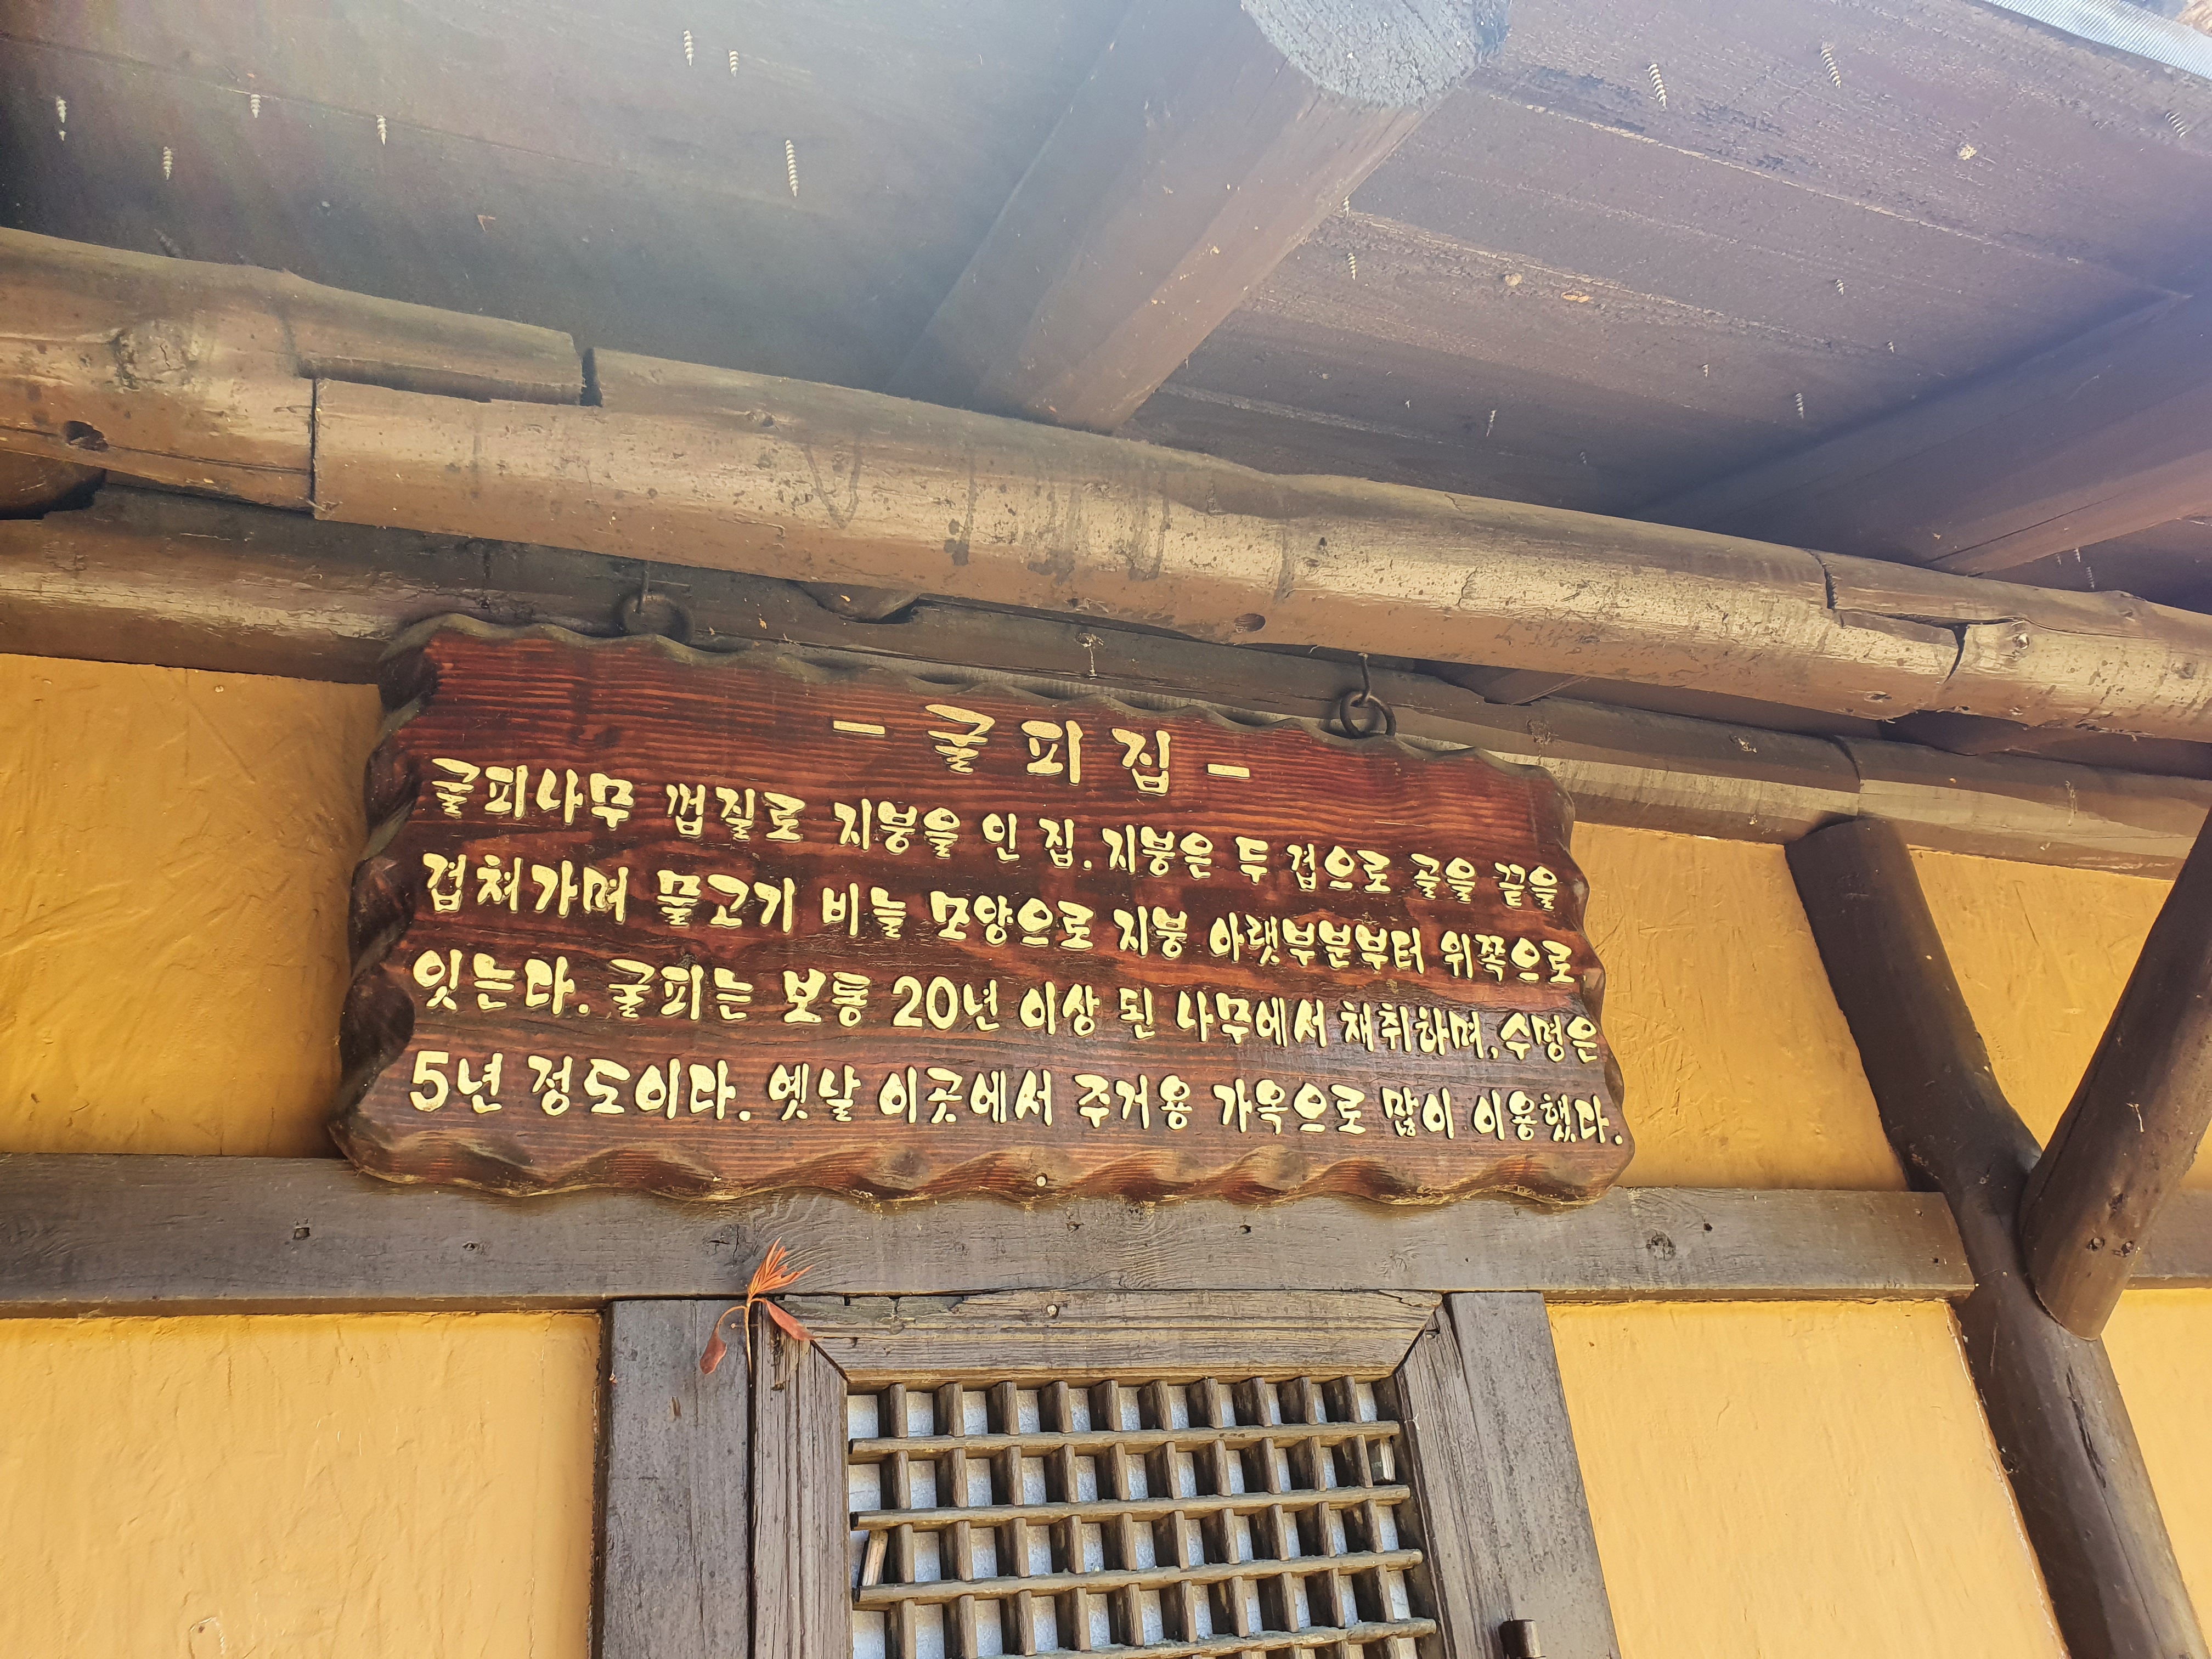 - 굴피집 -
굴피나무 껍질로 지붕을 인 집. 지붕은 두 겹으로 골을 끝을
겹쳐가며 물고기 비늘 모양으로 지붕 아랫부분부터 위쪽으로
잇는다. 굴피는 보통 20년 이상 된 나무에서 채취하며, 수명은
5년 정도이다. 옛날 이곳에서 주거용 가옥으로 많이 이용했다.